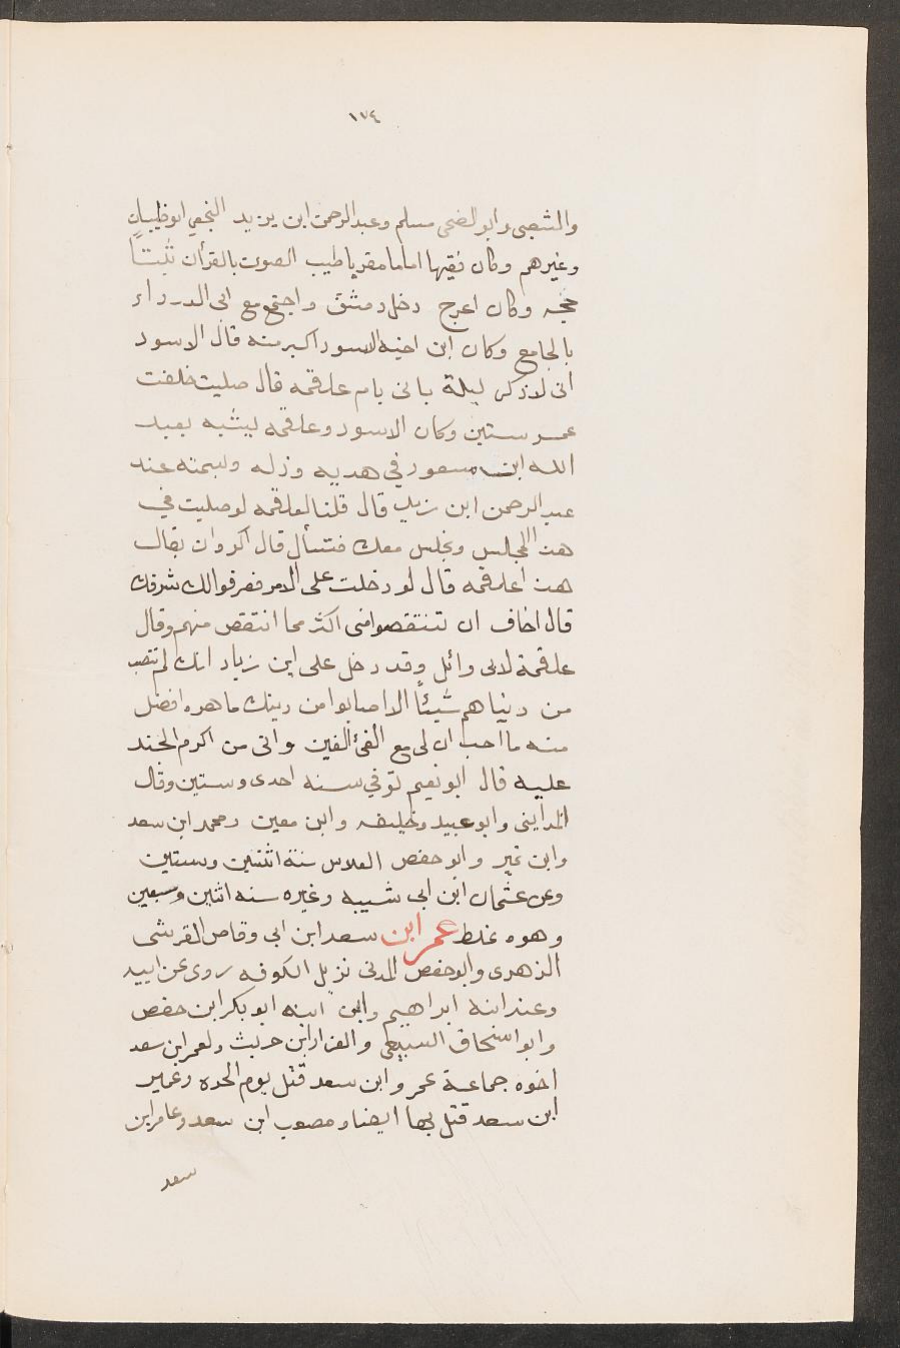 ١٧٤
والشعبى وابو الضحى مسلم وعبد الرحمن ابن يزيد النخعي ابو ظبيان
وغيرهم وكان فقيها اماما مقريا طيب الصوت بالقرأن ثبتًا
حجه وكان اعرج دخل دمشق واجتمع مع ابى الدرداء
بالجامع وكان ابن اخيه الاسود اكبر منه قال الاسود
انى لاذكر ليلة بانى بام علقمه قال صليت خلف
عمر ستين وكان الاسود وعلقمه ليشبه بعبد
الله ابن مسعود في هديه ودله وسمته عند
عبد الرحمن ابن زيد قال قلنا لعلقمه لو صليت في
هذا المجلس ونجلس معك فتسأل قال اكره ان يقال
هذا علقمه قال لو دخلت على الامر فعرفوا لك شرفك
قال اخاف ان تنتقصوا منى اكثر مما انتقص منهم وقال
علقمة لابى وائل وقد دخل على ابن زياد انك لم تصب
من دنياهم شيئًا الا اصابوا من دينك ما هوه افضل
منه ما احب ان لى مع الفىّ الفين وانى من اكرم الجند
عليه قال ابو نعيم توفي سنه احدى وستين وقال
المداينى وابو عبيد وخليفه وابن معين ومحمد ابن سعد
وابن نمير وابو حفص الفلاس سنة اثنتين وستين
وعن عثمان ابن ابى شيبه وغيره سنه اثنين وسبعين
وهوه غلط عمر ابن سعد ابن ابى وقاص القرشى
الزهرى وابو حفص المدنى نزيل الكوفه روى عن ابيه
وعند ابنه ابراهيم وابن ابنه ابو بكر ابن حفص
وابو اسحاق السبيعي والعزار ابن حريث ولعمر ابن سعد
اخوه جماعة عمرو ابن سعد قتل يوم الحره وعمير
ابن سعد قتل بها ايضا ومصعب ابن سعد وعامر ابن
سعد